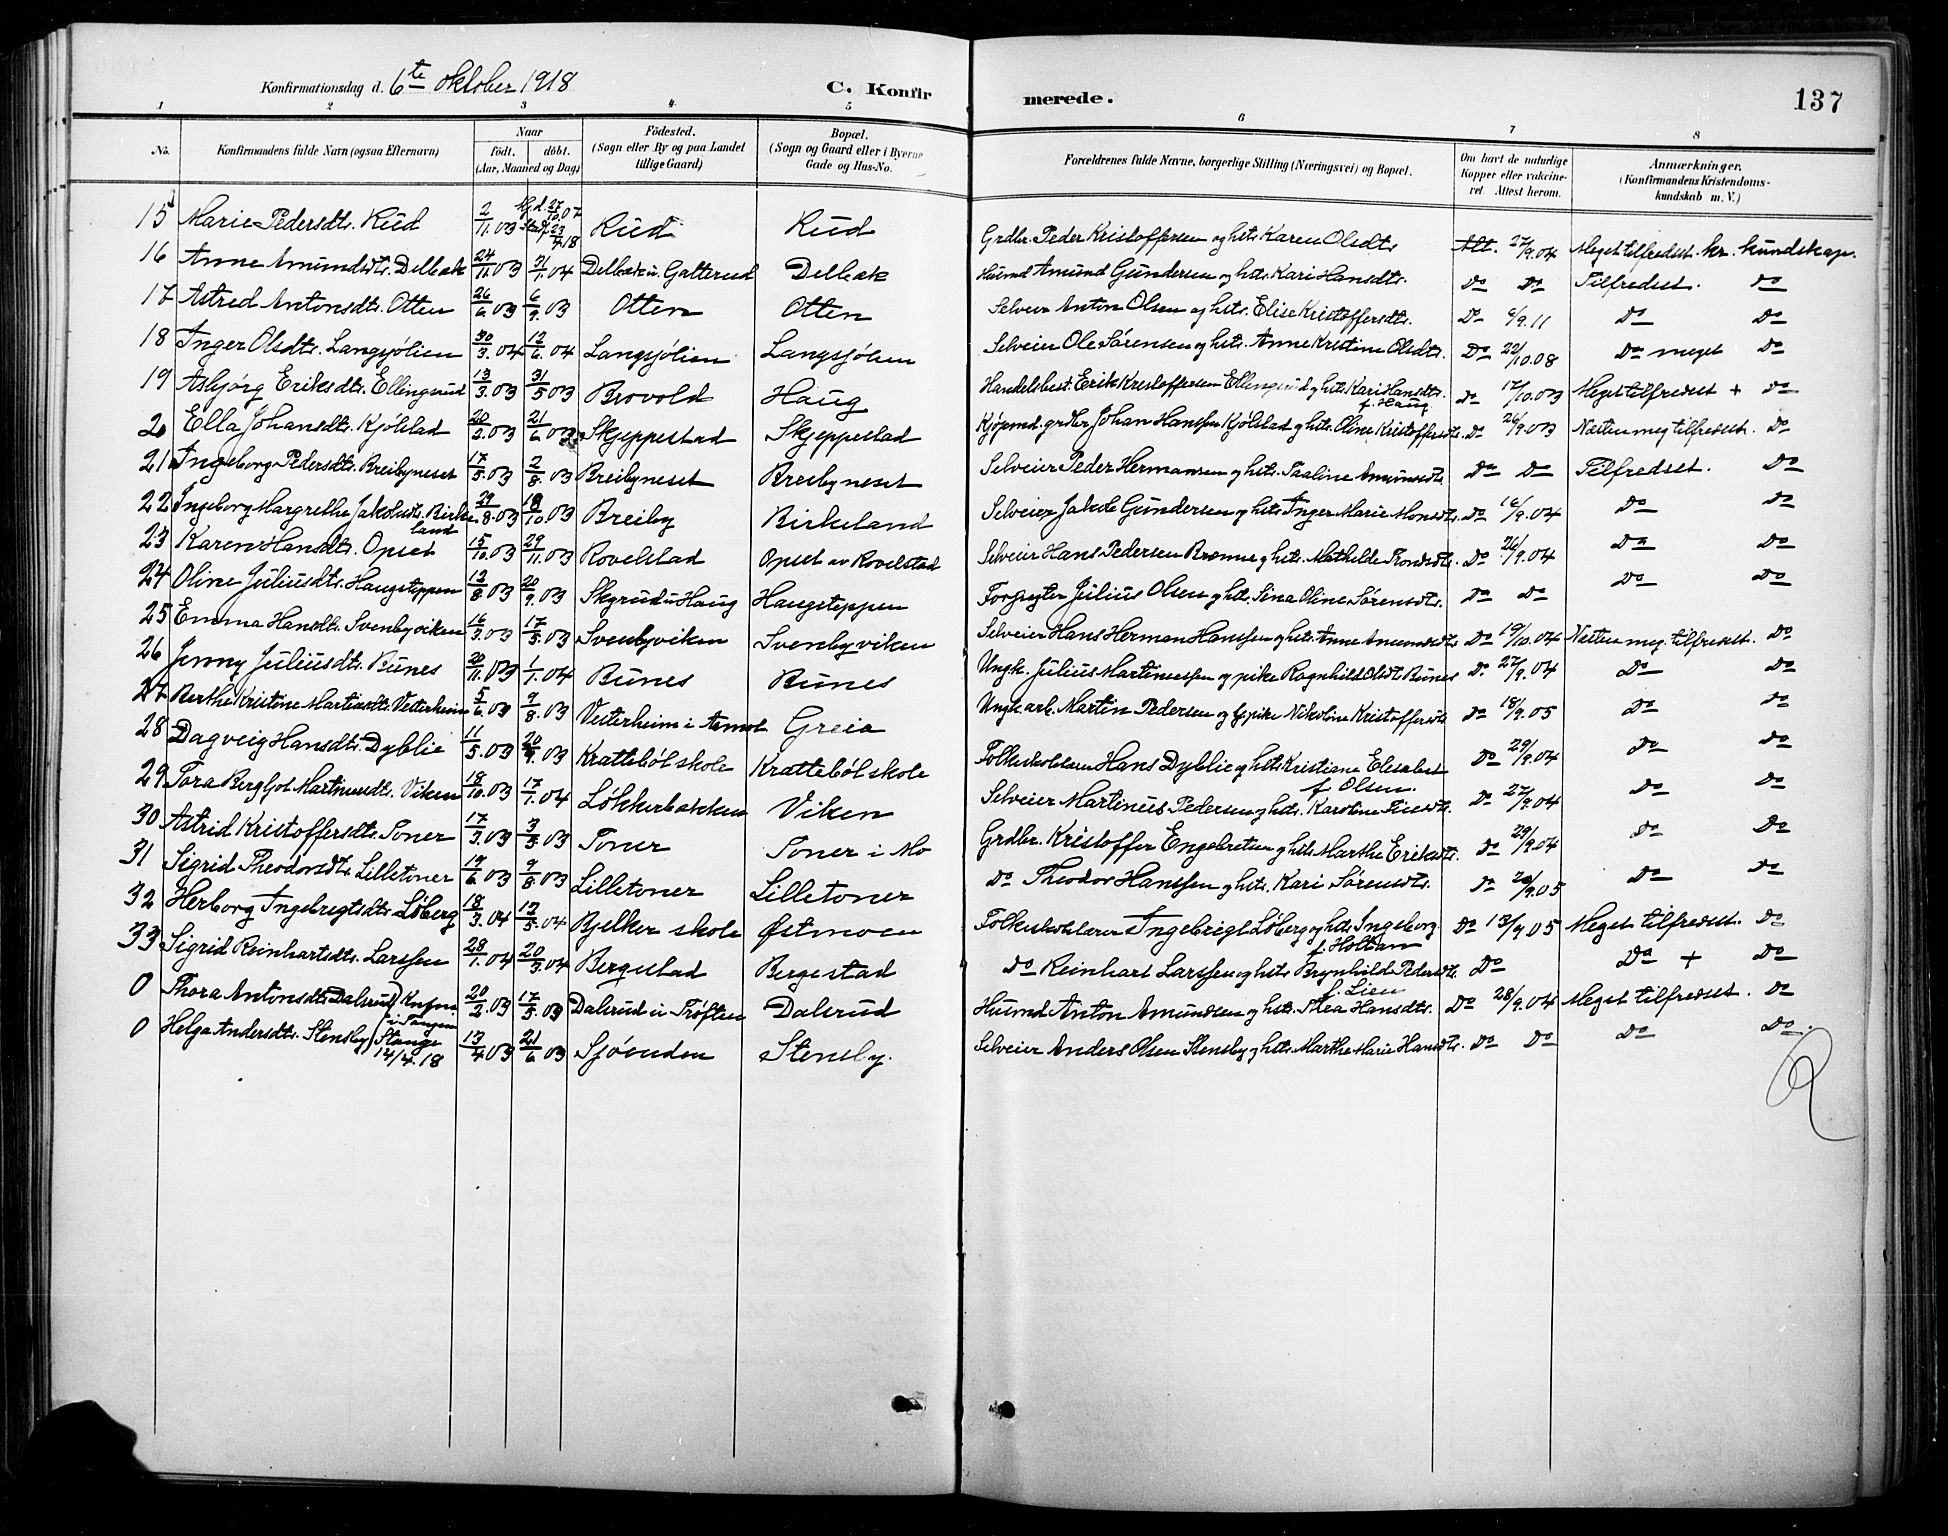 Konfirmationsdag d. 6te oktober 1918 C. Konfirmerede. 137
1 2 3 4 5 6 7 8
No. Konfirmandens fulde Navn (ogsaa Efternavn) Naar födt. döbt. (Aar, Maaned og Dag) Födested. (Sogn eller By og paa Landet tillige Gaard) Bopæl. (Sogn og Gaard eller i Byerne Gade og Hus-No. Forældrenes fulde Navne, borgerlige Stilling (Næringsvei) og Bopæl. Om havt de naturlige Kopper eller vakcineret Attest herom. Anmærkninger. (Konfirmandens Kristendomskundskab m. V.)
15 Marie Pedersdt. Rud 2/11.03 hj.d. 27/10.07 stadf. 23/4.18 Rud Rud Grdbr. Peder Kristoffersen og hst. Karen Olsdt. Att. 27/9.04 Meget tilfredsst. kr. kundskap.
16 Anne Amundsdt. Delbæk 24/11.03 21/1.04 Delbæk u. Galterud Delbæk Husmd Amund Gundersen og hst. Kari Hansdt. Do Do Tilfredsst. Do
17 Astred Antonsdt. Otten 26/6.03 6/9.03 Otten Otten Selveier Anton Olsen og hst. Elise Kristoffersdt. Do 6/9.11 Do Do
18 Inger Olsdt. Langsjölien 30/3.04 12/6.04 Langsjölien Langsjölien Selveier Ole Sørensen og hst. Anne Kristine Olsdt. Do 22/10.08 Do meget Do
19 Asbjørg Eriksdt. Ellingsrud 13/3.03 31/5.03 Brovold Haug Handelsbest. Erik Kristoffersen Ellingsrud og hst. Kari Hansdt. f. Haug Do 17/10.03 Meget tilfredsst + Do
20 Ella Johansdt. Kjölstad 20/2.03 21/6.03 Skjeppestad Skjeppestad Kjøpmd. grdbr. Johan Hanssen Kjölstad og hst. Oline Kristoffersdt. Do 26/9.03 Næsten meg tilfredsst. Do
21 Ingeborg Pedersdt. Breibyneset 17/5.03 2/8.03 Breibyneset Breibyneset Selveier Peder Hermansen og hst. Pauline Amundsdt. Do Do Tilfredsst. Do
22 Ingeborg Margrethe Jakobsdt. Birkeland 29/8.03 18/10.03 Breiby Birkeland Selveier Jakob Gundersen og hst. Inger Marie Monsdt. Do 16/9.04 Do Do
23 Karen Hansdt. Opset 15/10.03 29/11.03 Rovelstad Opset av Rovelstad Selveier Hans Pedersen Brenne og hst. Mathilde Rondsdt. Do 26/9.04 Do Do
24 Oline Juliusdt. Haugsteppen 13/8.03 20/9.03 Skgrud u Haug Haugsteppen Forpagter Julius Olsen og hst. Sina Oline Sørensdt. Do Do Do Do
25 Emma Hansdt. Svenbyviken 16/3.03 17/5.03 Svenbyviken Svenbyviken Selveier Hans Herman Hanssen og hst. Anne Amundsdt. Do 19/10.04 Næsten meg. tilfredsst. Do
26 Jenny Juliusdt. Bunes 20/11.03 1/1.04 Bunes Bunes Ungk. Julius Martinussen og pike Ragnhild Olsdt Bunes Do. 27/9.04 Do Do
27 Berthe Kristine Martinsdt. Vesterheim 5/6.03 9/8.03 Vesterheim i Aamot Greia Ungk. arb. Martin Pedersen og pike Nikoline Kristoffersdt. Do 18/9.05 Do Do
28 Dagveig Hansdt. Dyblie 11/5.03 20/9.03 Kratteböl skole Kratteböl skole Folkeskolelærer Hans Dyblie og hst. Kristiane Elisabet f. Olsen. Do 29/9.04 Do Do
29 Tora Bergljot Martinusdt. Viken 18/10.03 17/1.04 Løkkerbakken Viken Selveier Martinus Pedersen og hst. Karoline Huesdt. Do 27/9.04 Do Do
30 Astrid Kristoffersdt. Toner 17/3.03 3/5.03 Toner Toner i Mo Grdbr. Kristoffer Engebretsen og hst. Marthe Eriksdt. Do 29/9.04 Do Do
31 Sigrid Theodorsdt. Lilletoner 19/6.03 9/8.03 Lilletoner Lilletoner Do Theodor Hanssen og hst. Kari Sørensdt. Do 20/9.05 Do Do
32 Herborg Ingebrigtsdt. Løberg 18/3.04 12/5.04 Bjelker skole Østmoen Folkeskolelærer Ingebrigt Løberg og hst. Ingeborg f. Holtan Do 13/9.05 Meget tilfredsst. Do
33 Sigrid Reinhartsdt. Larssen 28/1.04 20/3.04 Bergestad Bergestad Do Reinhart Larssen og hst. Brynhild Pedersdt. f. Lien Do Do + Do
0 Thora Antonsdt. Dalsrud 20/2.03 17/5.03 Dalsrud u Trøften Dalsrud Husmd Anton Amundsen og hst. Thea Hansdt. Do 28/9.04 Meget tilfredsst. Do
0 Helga Andersdt. Stensby } Knfm. i Tangen Stange 14/4.18 13/4.03 21/6.03 Sjøenden Stensby. Selveier Anders Olsen Stensby og hst. Marthe Marie Hansdt. Do Do Do Do.